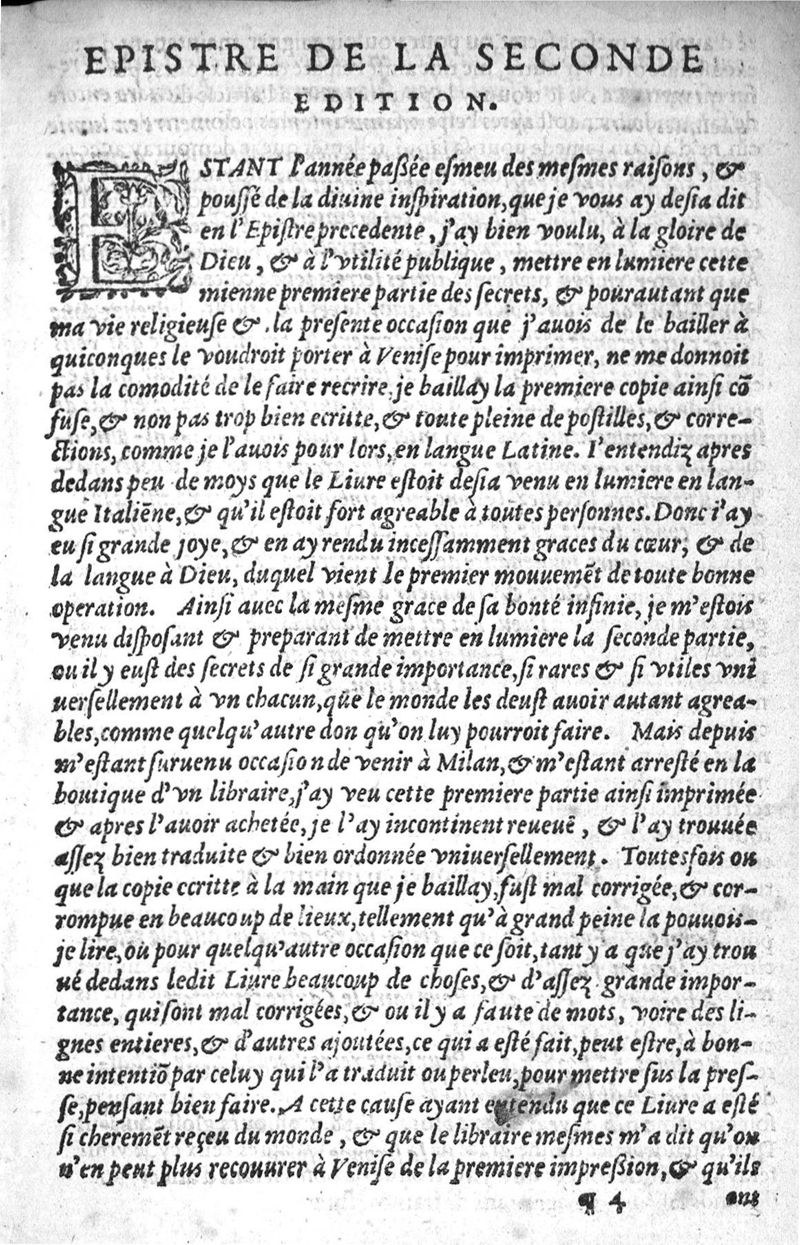 EPISTRE DE LA SECONDE
EDITION.
ESTANT l'année paßée esmeu des mesmes raisons, &
poussé de la diuine inspiration, que je vous ay desia dit
en l'Epistre precedente, j'ay bien voulu, à la gloire de
Dieu, & à l'vtilité publique, mettre en lumiere cette
mienne premiere partie des secrets, & pourautant que
ma vie religieuse & la presente occasion que j'auois de le bailler à
quiconques le voudroit porter à Venise pour imprimer, ne me donnoit
pas la comodité de le faire recrire, je baillay la premiere copie ainsi cõ
fuse, & non pas trop bien ecritte, & toute pleine de postilles, & corre-
ctions, comme je l'auois pour lors, en langue Latine. I'entendiz apres
dedans peu de moys que le Liure estoit desia venu en lumiere en lan-
gue Italiẽne, & qu'il estoit fort agreable à toutes personnes. Donc i'ay
eu si grande joye, & en ay rendu incessamment graces du cœur, & de
la langue à Dieu, duquel vient le premier mouuemẽt de toute bonne
operation. Ainsi auec la mesme grace de sa bonté infinie, je m'estois
venu disposant & preparant de mettre en lumiere la seconde partie,
ou il y eust des secrets de si grande importance, si rares & si vtiles vni
uersellement à vn chacun, que le monde les deust auoir autant agrea-
bles, comme quelqu'autre don qu'on luy pourroit faire. Mais depuis
m'estant suruenu occasion de venir à Milan, & m'estant arresté en la
boutique d'vn libraire, j'ay veu cette premiere partie ainsi imprimée
& apres l'auoir achetée, je l'ay incontinent reueuë, & l'ay trouuée
assez bien traduite & bien ordonnée vniuersellement. Toutesfois ou
que la copie ecritte à la main que je baillay, fust mal corrigée, & cor-
rompue en beaucoup de lieux, tellement qu'à grand peine la pouuois-
je lire, ou pour quelqu'autre occasion que ce soit, tant y a que j'ay trou
ué dedans ledit Liure beaucoup de choses, & d'assez grande impor-
tance, qui sont mal corrigées, & ou il y a faute de mots, voire des li-
gnes entieres, & d'autres ajoutées, ce qui a esté fait, peut estre, à bon-
ne intentiõ par celuy qui l'a traduit ou perleu, pour mettre sus la pres-
se, pensant bien faire. A cette cause ayant entendu que ce Liure a esté
si cheremẽt reçeu du monde, & que le libraire mesmes m'a dit qu'on
n'en peut plus recouurer à Venise de la premiere impreßion, & qu'ils
¶ 4 ont